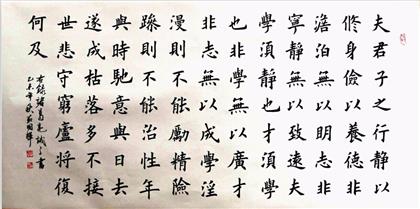 夫君子之行靜以
修身儉以養德非
澹泊無以明志非
寧靜無以致遠夫
學須靜也才須學
也非學無以廣才
非志無以成學淫
漫則不能勵精險
躁則不能治性年
與時馳意與日去
遂成枯落多不接
世悲守窮廬將復
何及
右錄諸葛亮誡子書
乙未年秋